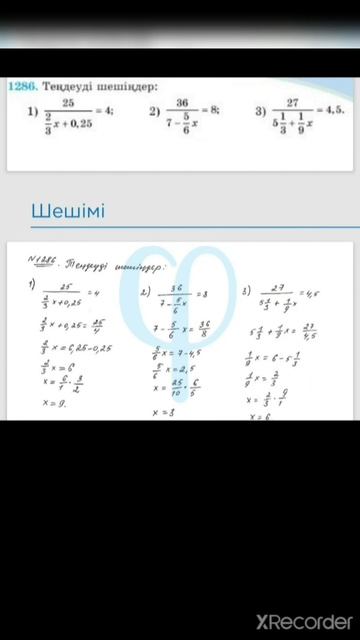 1286. Теңдеуді шешіңдер:
1) 25 / (2/3 x + 0,25) = 4; 2) 36 / (7 − 5/6 x) = 8; 3) 27 / (5 1/3 + 1/9 x) = 4,5.
Шешімі
№1286. Теңдеуді шешіңдер:
1) 25 / (2/3 x + 0,25) = 4
2/3 x + 0,25 = 25/4
2/3 x = 6,25 − 0,25
2/3 x = 6
x = 6/1 · 3/2
x = 9.
2) 36 / (7 − 5/6 x) = 8
7 − 5/6 x = 36/8
5/6 x = 7 − 4,5
5/6 x = 2,5
x = 25/10 · 6/5
x = 3
3) 27 / (5 1/3 + 1/9 x) = 4,5
5 1/3 + 1/9 x = 27/4,5
1/9 x = 6 − 5 1/3
1/9 x = 2/3
x = 2/3 · 9/1
x = 6
XRecorder